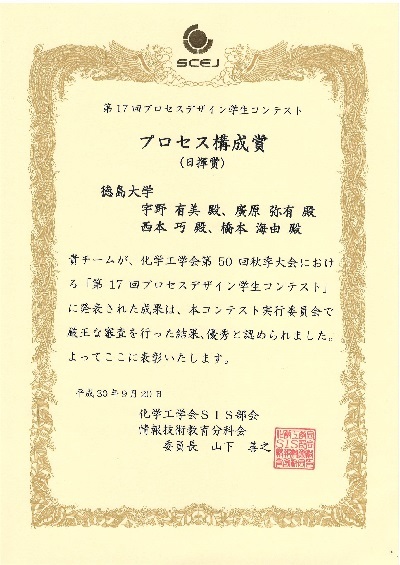 SCEJ
第17回プロセスデザイン学生コンテスト
プロセス構成賞
(日揮賞)
徳島大学
宇野 有美 殿、廣原 弥有 殿
西本 巧 殿、橋本 海由 殿
貴チームが、化学工学会第50回秋季大会におけ
る「第17回プロセスデザイン学生コンテスト」
に発表された成果は、本コンテスト実行委員会で
厳正な審査を行った結果、優秀と認められました。
よってここに表彰いたします。
平成30年9月20日
化学工学会SIS部会
情報技術教育分科会
委員長 山下 善之